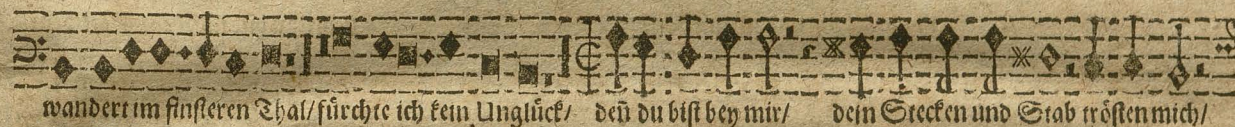 wandert im finsteren Thal/ fürchte ich kein Unglück/ deñ du bist bey mir/ dein Stecken und Stab trösten mich/